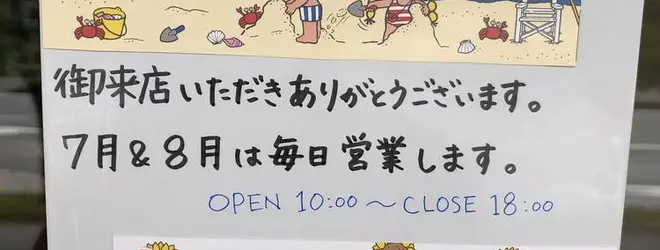 御来店いただきありがとうございます。
7月&8月は毎日営業します。
OPEN 10:00 〜 CLOSE 18:00